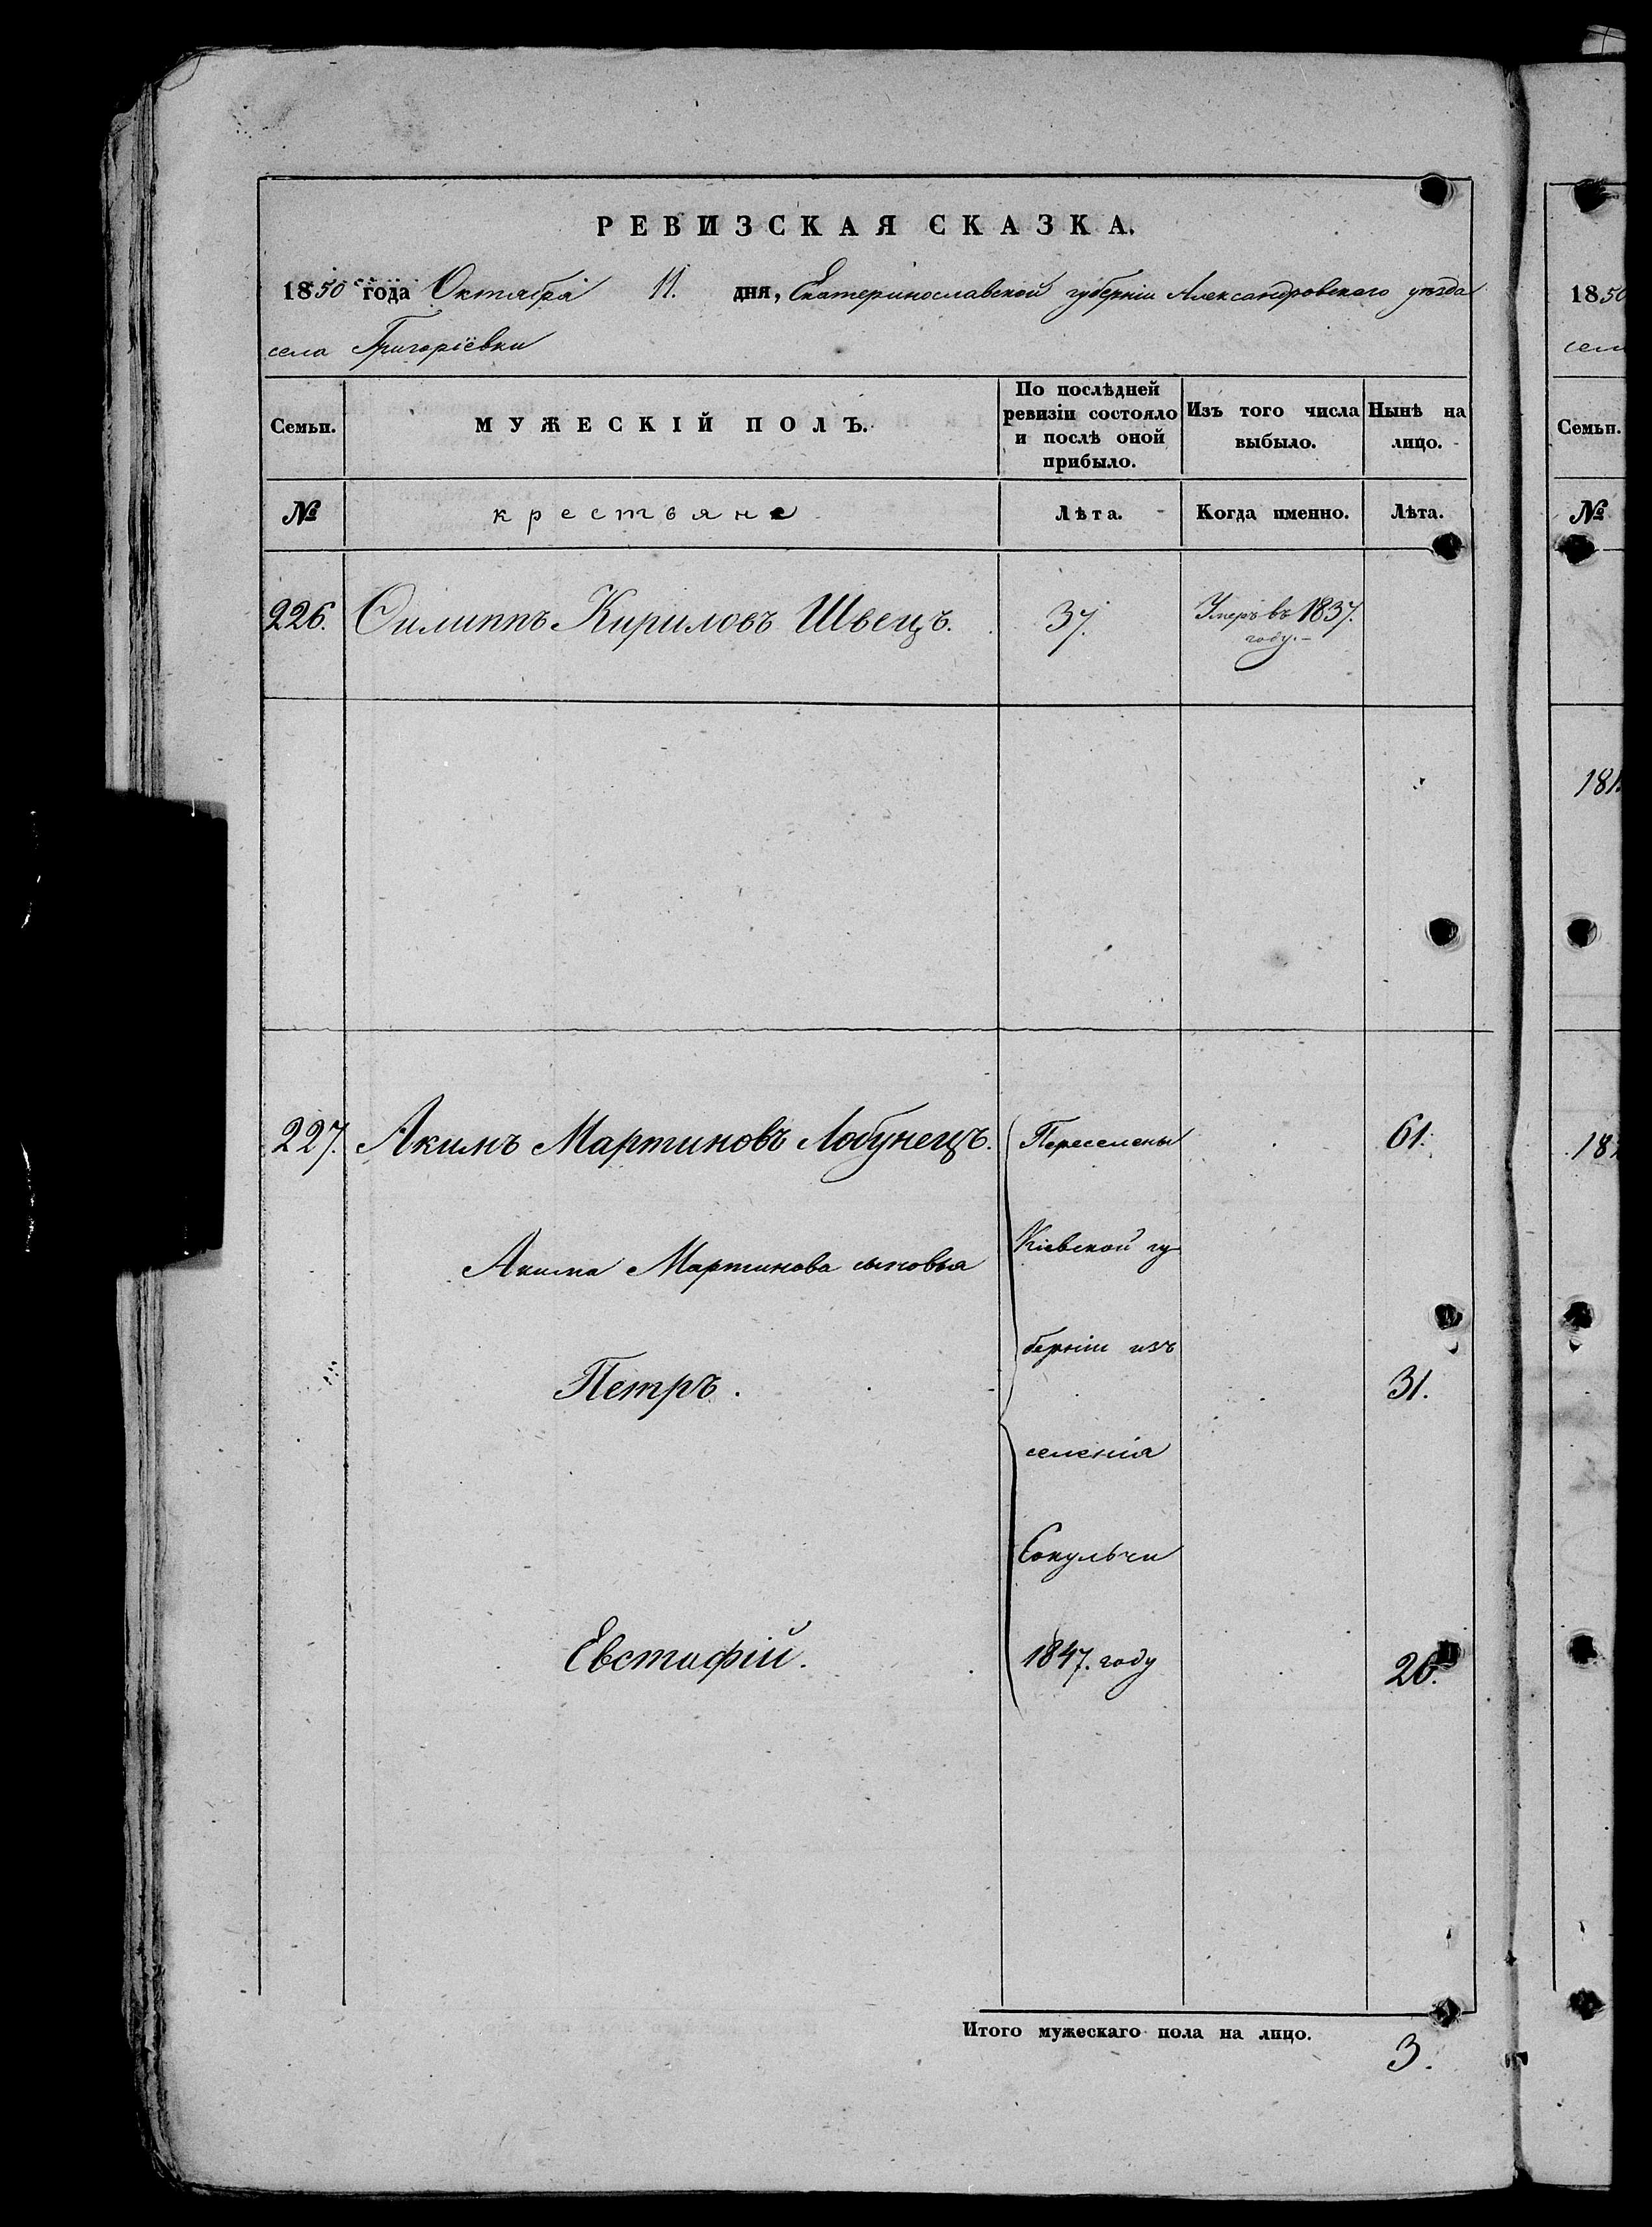 РЕВИЗСКАЯ СКАЗКА.
1850 года Октября 11. дня, Екатеринославской губерніи Александровского уѣзда
села Григоріевки
Семьи. МУЖЕСКІЙ ПОЛЪ. По послѣдней ревизіи состояло и послѣ оной прибыло. Изъ того числа выбыло. Нынѣ на лицо.
№ крестьяне Лѣта. Когда именно. Лѣта.
226. Филиппъ Кириловъ Швецъ. 37. Умеръ въ 1837.
году.
227. Акимъ Мартиновъ Лобунецъ. Переселены 61.
Акима Мартинова сыновья Кіевской гу
берніи изъ
Петръ. 31.
селенія
Сокульчи
Евстафій. 1847. году 26.
Итого мужескаго пола на лицо. 3.
1850
№